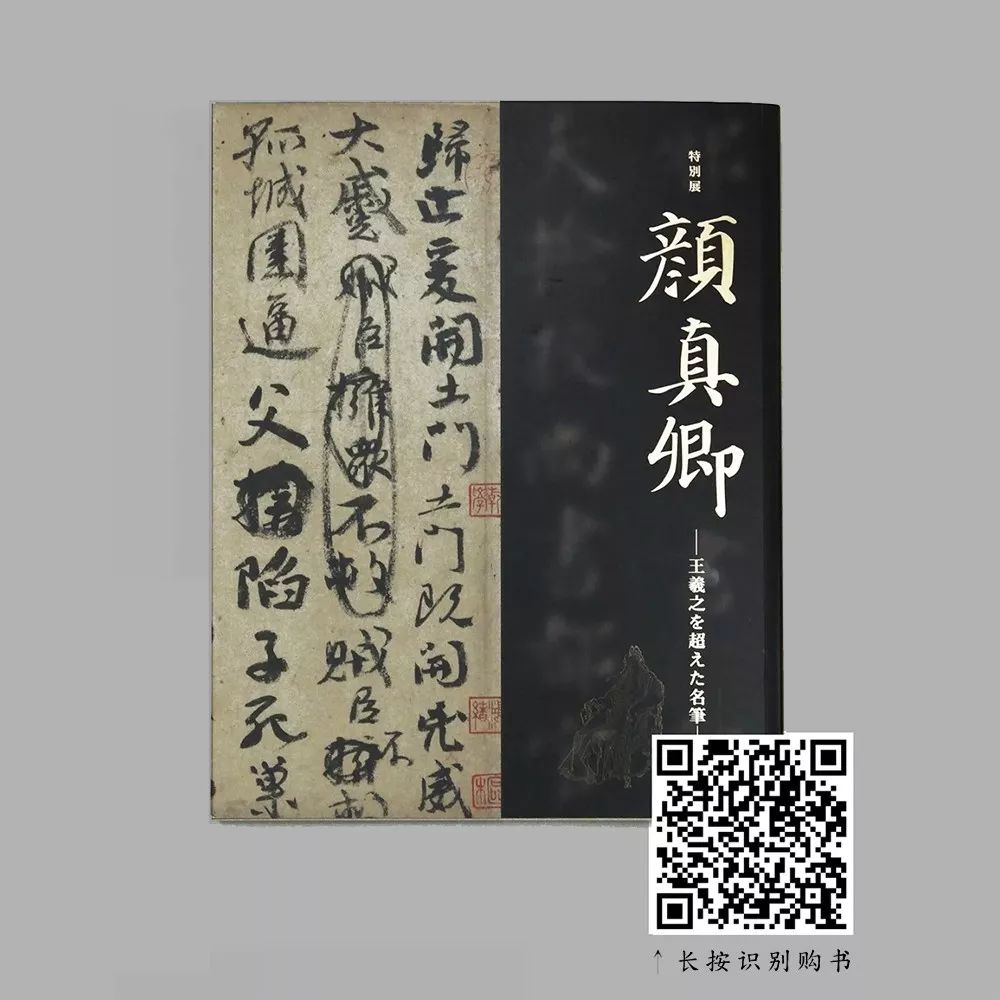 特別展
顔真卿
—王羲之を超えた名筆—
歸止爰開土門土門既開兇威
大蹙賊臣擁衆不救賊臣不
孤城圍逼父陷子死巢
↑长按识别购书